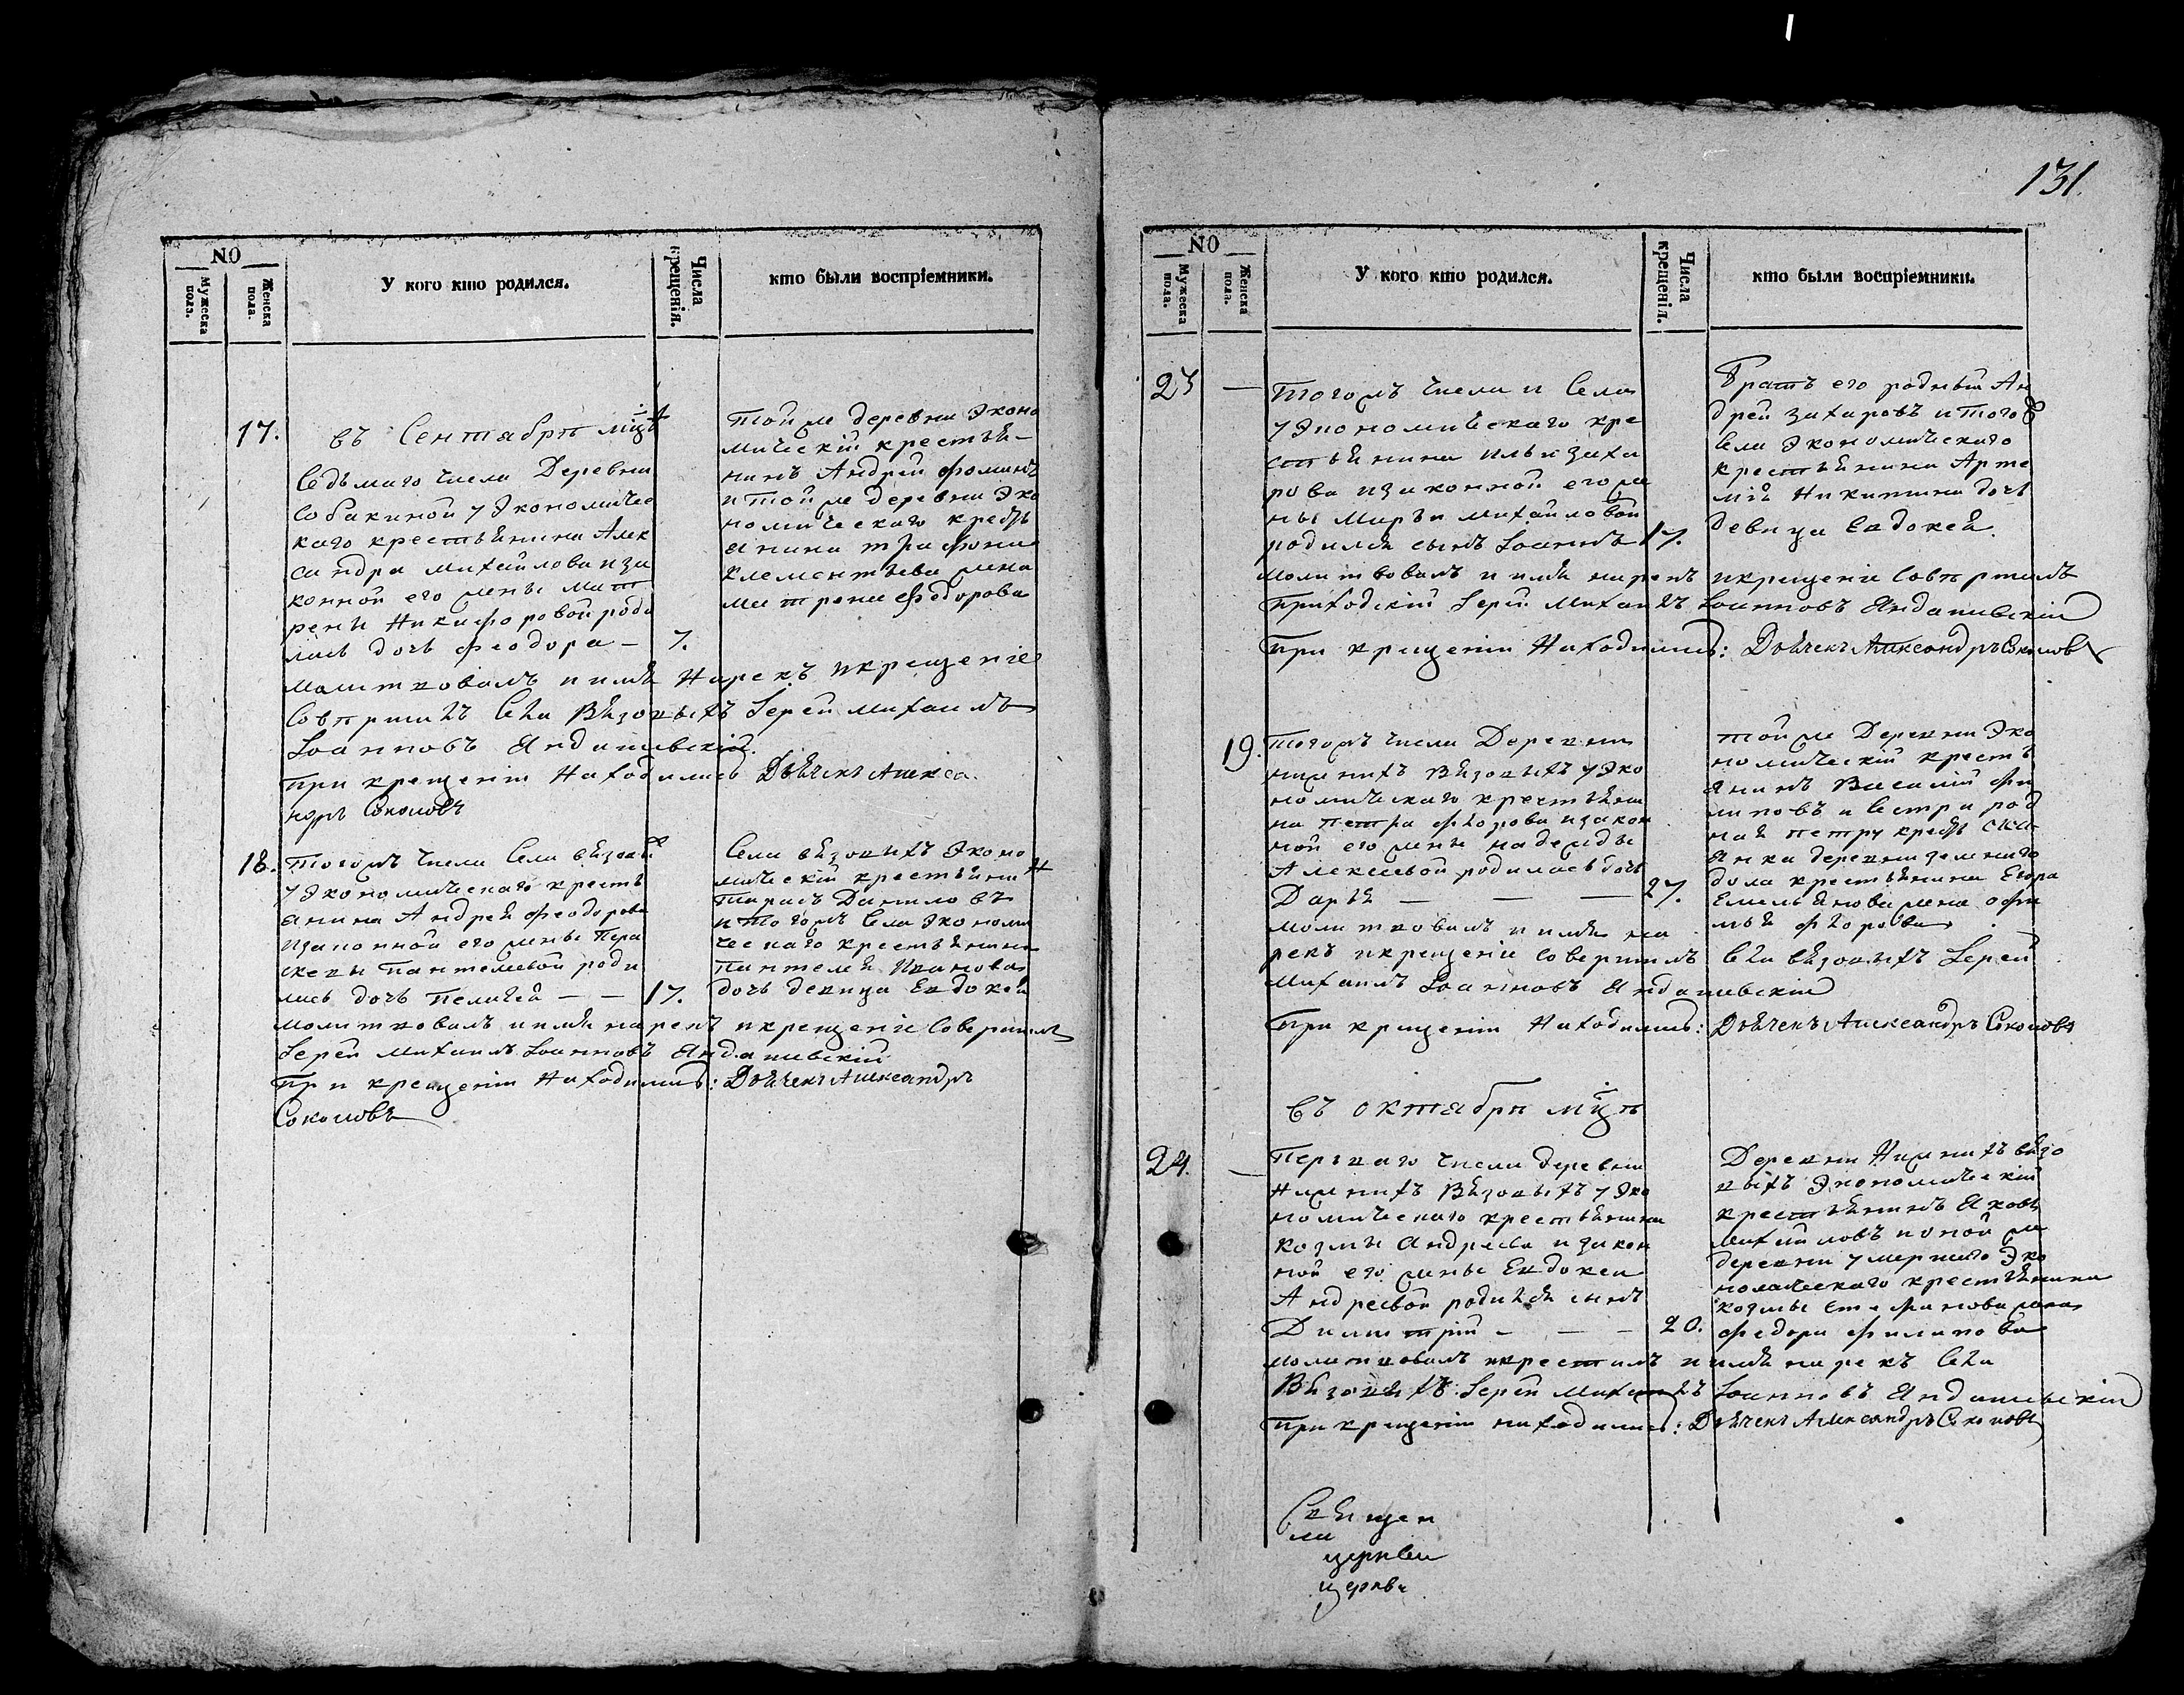 131.
NO
Мужеска пола.
Женска пола.
У кого кто родился.
Числа крещенія.
кто были воспріемники.
въ Сентябрѣ мцѣ
17.
Седьмаго числа Деревни
Собакиной у Экономичес
каго крестьянина Алек
сандра Михайлова иза
конной его жены Мат
рены Никифоровой роди
лась дочь Феодора — 7.
той же деревни Эконо
мическій крестья-
нинъ Андрей Фоминъ
и той же деревни Эко
номическаго кресть
янина Трифона
Клементьева жена
Матрена Федорова
молитвовалъ и имя нарекъ и крещеніе
Совершилъ Села Вязовыхъ Іерей Михаилъ
Іоанновъ Яндашевскій.
при крещеніи находились Дьячекъ Алекса
ндръ Соколовъ
18.
тогожъ числа Села Вязовы
у Экономическаго кресть
янина Андрея Феодорова
изаконной его жены Пера
скевы Пантелевой роди
лась дочь Пелагея — — 17.
Села Вязовыхъ Эконо
мическій крестьянин
Тарасъ Даниловъ
и тогожъ Села Экономи
ческаго крестьянина
Пантелея Иванова
дочь девица Евдокея
молитвовалъ и имя нарекъ и крещеніе Совершилъ
Іерей Михаилъ Іоанновъ Яндашевскій
При крещеніи Находились: Дьячекъ Александръ
Соколовъ
NO
Мужеска пола.
Женска пола.
У кого кто родился.
Числа крещенія.
кто были воспріемники.
23 —
тогожъ числа и Села
у Экономическаго кре
стьянина Ильи Заха
рова изаконной его же
ны Марьи Михайловой
родился сынъ Іоаннъ 17.
Братъ его родный Ан
дрей Захаровъ и того
Села Экономическаго
крестьянина Арте
мія Никитина дочь
девица Евдокея.
молитвовалъ и имя нарекъ и крещеніе Совершилъ
Приходскій Іерей Михаилъ Іоанновъ Яндашевскій
При крещеніи Находились: Дьячекъ Александръ Соколовъ
19.
тогожъ числа Деревни
Нижнихъ Вязовыхъ у Эко
номическаго крестьяни
на Петра Федорова изакон
ной его жены Надежды
Алексеевой родилась дочь
Дарья — — — 27.
той же Деревни Эко
номическій кресть
янинъ Василій Фи
липовъ и Сестра род
ная Петру
деревни Зеленаго
дола крестьянина Егора
Емельянова жена
Федорова
молитвовалъ и имя на
рекъ и крещеніе Совершилъ Села Вязовыхъ Іерей
Михаилъ Іоанновъ Яндашевскій
При крещеніи Находились: Дьячекъ Александръ Соколовъ
въ октябрѣ мцѣ
24. —
Перваго числа деревни
Нижнихъ Вязовыхъ у Эко
номическаго крестьянина
Козмы Андреева изакон
ной его жены Евдокеи
Андреевой родился сынъ
Димитрій — — — 20.
Деревни Нижнихъ Вязо
выхъ Экономическій
крестьянинъ Яковъ
Михайловъ и оной же
деревни умершаго Эко
номическаго крестьянина
Козмы жена
Федора Филипова
молитвовалъ и крестилъ и имя нарекъ Села
Вязовыхъ Іерей Михаилъ Іоанновъ Яндашевскій
При крещеніи находились: Дьячекъ Александръ Соколовъ
Священ
церкви
церкви